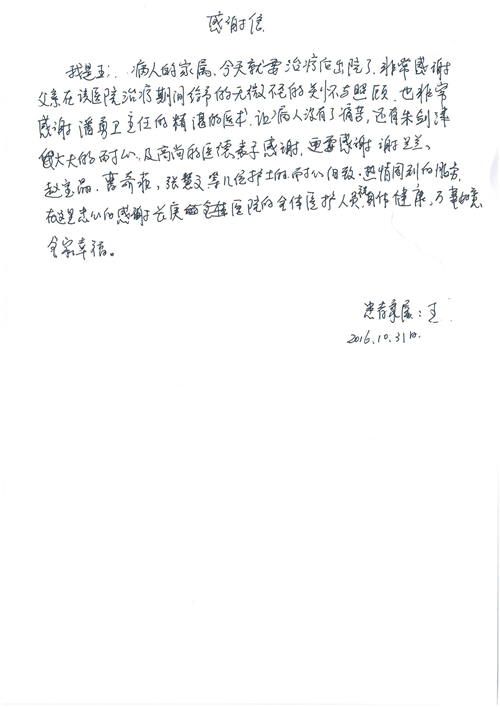 感谢信
我是王: 病人的家属,今天就要治疗后出院了,非常感谢
父亲在该医院治疗期间给予的无微不至的关怀与照顾,也非常
感谢潘勇卫主任的精湛的医术,让病人没有了痛苦,还有朱剑津
大夫的耐心,及高尚的医德表示感谢,更要感谢谢兰兰、
赵宝晶,张慧文等几位护士的耐心细致,热情周到的服务,
在这里衷心的感谢长庚医院的全体医护人员身体健康,万事如意,
全家幸福。
患者家属:王
2016.10.31日.